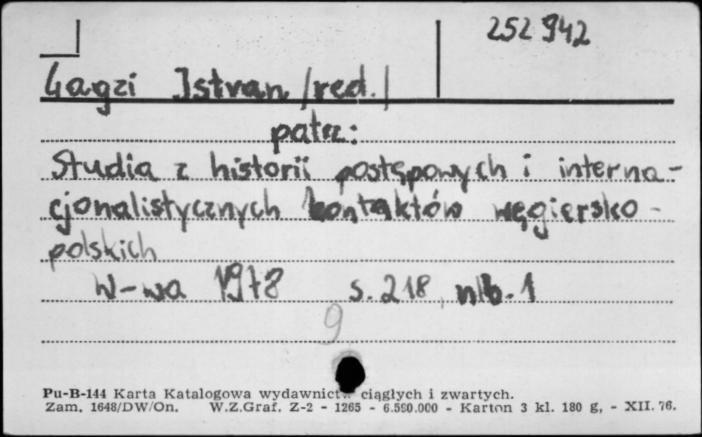 252 942
Lagzi Istvan /red./
patrz:
Studia z historii postępowych i interna-
cjonalistycznych kontaktów węgiersko-
polskich
W-wa 1978 s. 218, nlb. 1
9
Pu-B-144 Karta Katalogowa wydawnictw ciągłych i zwartych.
Zam. 1648/DW/On. W.Z.Graf. Z-2 - 1265 - 6.590.000 - Karton 3 kl. 180 g, - XII. 76.